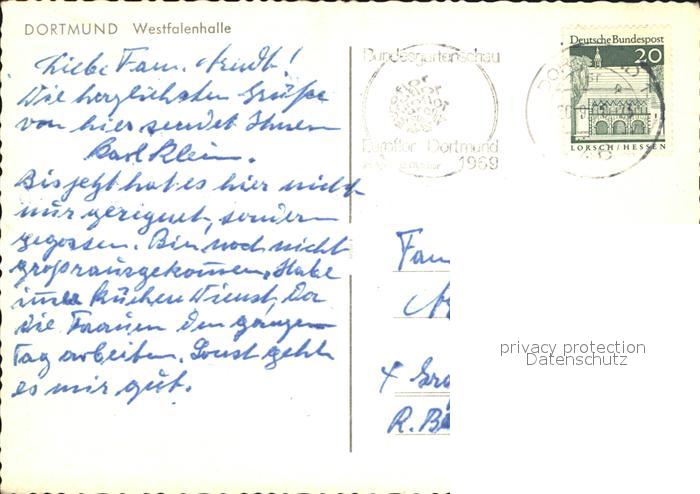 DORTMUND Westfalenhalle
Liebe Fam. Arndt!
Die herzlichsten Grüße
von hier sendet Ihnen
Karl Klein.
Bis jetzt hat es hier nicht
nur geregnet, sondern
gegossen. Bin noch nicht
groß rausgekommen. Habe
immer Küchen Dienst, Da
die Frauen Den ganzen
Tag arbeiten. Sonst geht
es mir gut.
Bundesgartenschau
Euroflor Dortmund
1969
Deutsche Bundespost
20
LORSCH/HESSEN
Fam
4 Gro
R. Be
privacy protection
Datenschutz